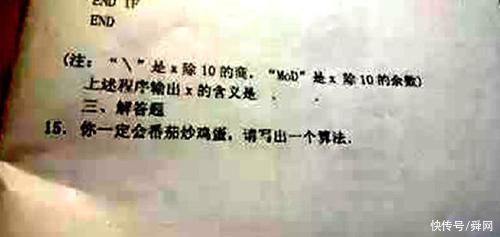 END IF
END
(注：“\”是x除10的商，“MoD”是x 除10的余数)
上述程序输出x的含义是 ．
三、解答题
15. 你一定会番茄炒鸡蛋，请写出一个算法．
快传号/舜网